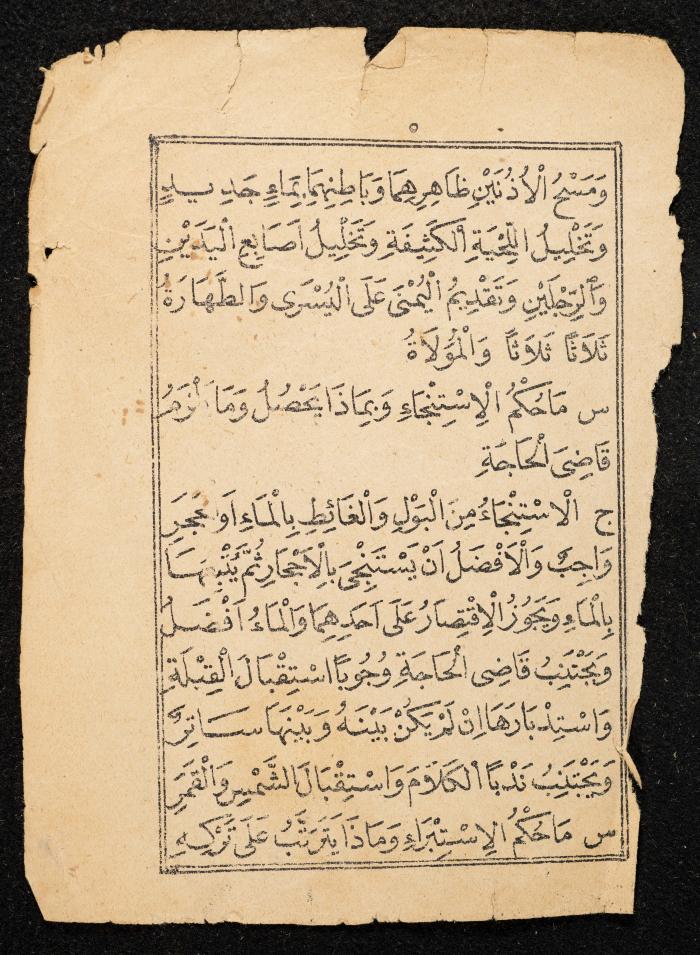 ٥
وَمَسْحُ الْاُذُنَيْنِ ظَاهِرِهِمَا وَبَاطِنِهِمَا بِمَاءٍ جَدِيدٍ
وَتَخْلِيلُ اللِّحْيَةِ الْكَثِيفَةِ وَتَخْلِيلُ اَصَابِعِ الْيَدَيْنِ
وَالرِّجْلَيْنِ وَتَقْدِيمُ الْيُمْنَى عَلَى الْيُسْرَى وَالطَّهَارَةُ
ثَلَاثًا ثَلَاثًا وَالْمُوَلَاةُ
س مَا حُكْمُ الْاِسْتِنْجَاءِ وَبِمَاذَا يَحْصُلُ وَمَا
قَاضِىَ الْحَاجَةِ
ج الْاِسْتِنْجَاءُ مِنَ الْبَوْلِ وَالْغَائِطِ بِالْمَاءِ اَوْ حَجَرٍ
وَاجِبٌ وَالْاَفْضَلُ اَنْ يَسْتَنْجِىَ بِالْاَحْجَارِ ثُمَّ يُتْبِعَهَا
بِالْمَاءِ وَيَجُوزُ الْاِقْتِصَارُ عَلَى اَحَدِهِمَا وَالْمَاءُ اَفْضَلُ
وَيَجْتَنِبُ قَاضِى الْحَاجَةِ وُجُوبًا اسْتِقْبَالَ الْقِبْلَةِ
وَاسْتِدْبَارَهَا اِنْ لَمْ يَكُنْ بَيْنَهُ وَبَيْنَهَا سَاتِرٌ
وَيَجْتَنِبُ نَدْبًا الْكَلَامَ وَاسْتِقْبَالَ الشَّمْسِ وَالْقَمَرِ
س مَا حُكْمُ الْاِسْتِبْرَاءِ وَمَاذَا يَتَرَتَّبُ عَلَى تَرْكِهِ